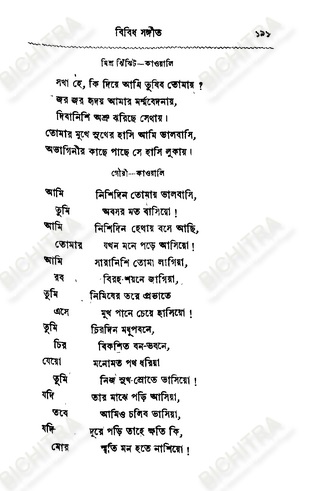 বিবিধ সঙ্গীত ১৯১
মিশ্র ঝিঁঝিট—কাওয়ালি
সখা হে, কি দিয়ে আমি তুষিব তোমায় ?
জর জর হৃদয় আমার মর্ম্মবেদনায়,
দিবানিশি অশ্রু ঝরিছে সেথায়।
তোমার মুখে সুখের হাসি আমি ভালবাসি,
অভাগিনীর কাছে পাছে সে হাসি লুকায়।
গৌরী—কাওয়ালি
আমি নিশিদিন তোমায় ভালবাসি,
তুমি অবসর মত বাসিয়ো !
আমি নিশিদিন হেথায় বসে আছি,
তোমার যখন মনে পড়ে আসিয়ো !
আমি সারানিশি তোমা লাগিয়া,
রব বিরহ-শয়নে জাগিয়া,
তুমি নিমিষের তরে প্রভাতে
এসে মুখ পানে চেয়ে হাসিয়ো !
তুমি চিরদিন মধুপবনে,
চির বিকশিত বন-ভবনে,
যেয়ো মনোমত পথ ধরিয়া
তুমি নিজ সুখ-স্রোতে ভাসিয়ো !
যদি তার মাঝে পড়ি আসিয়া,
তবে আমিও চলিব ভাসিয়া,
যদি দূরে পড়ি তাহে ক্ষতি কি,
মোর স্মৃতি মন হতে নাশিয়ো !
BICHITRA
BICHITRA
BICHITRA
BICHITRA
BICHITRA
BICHITRA